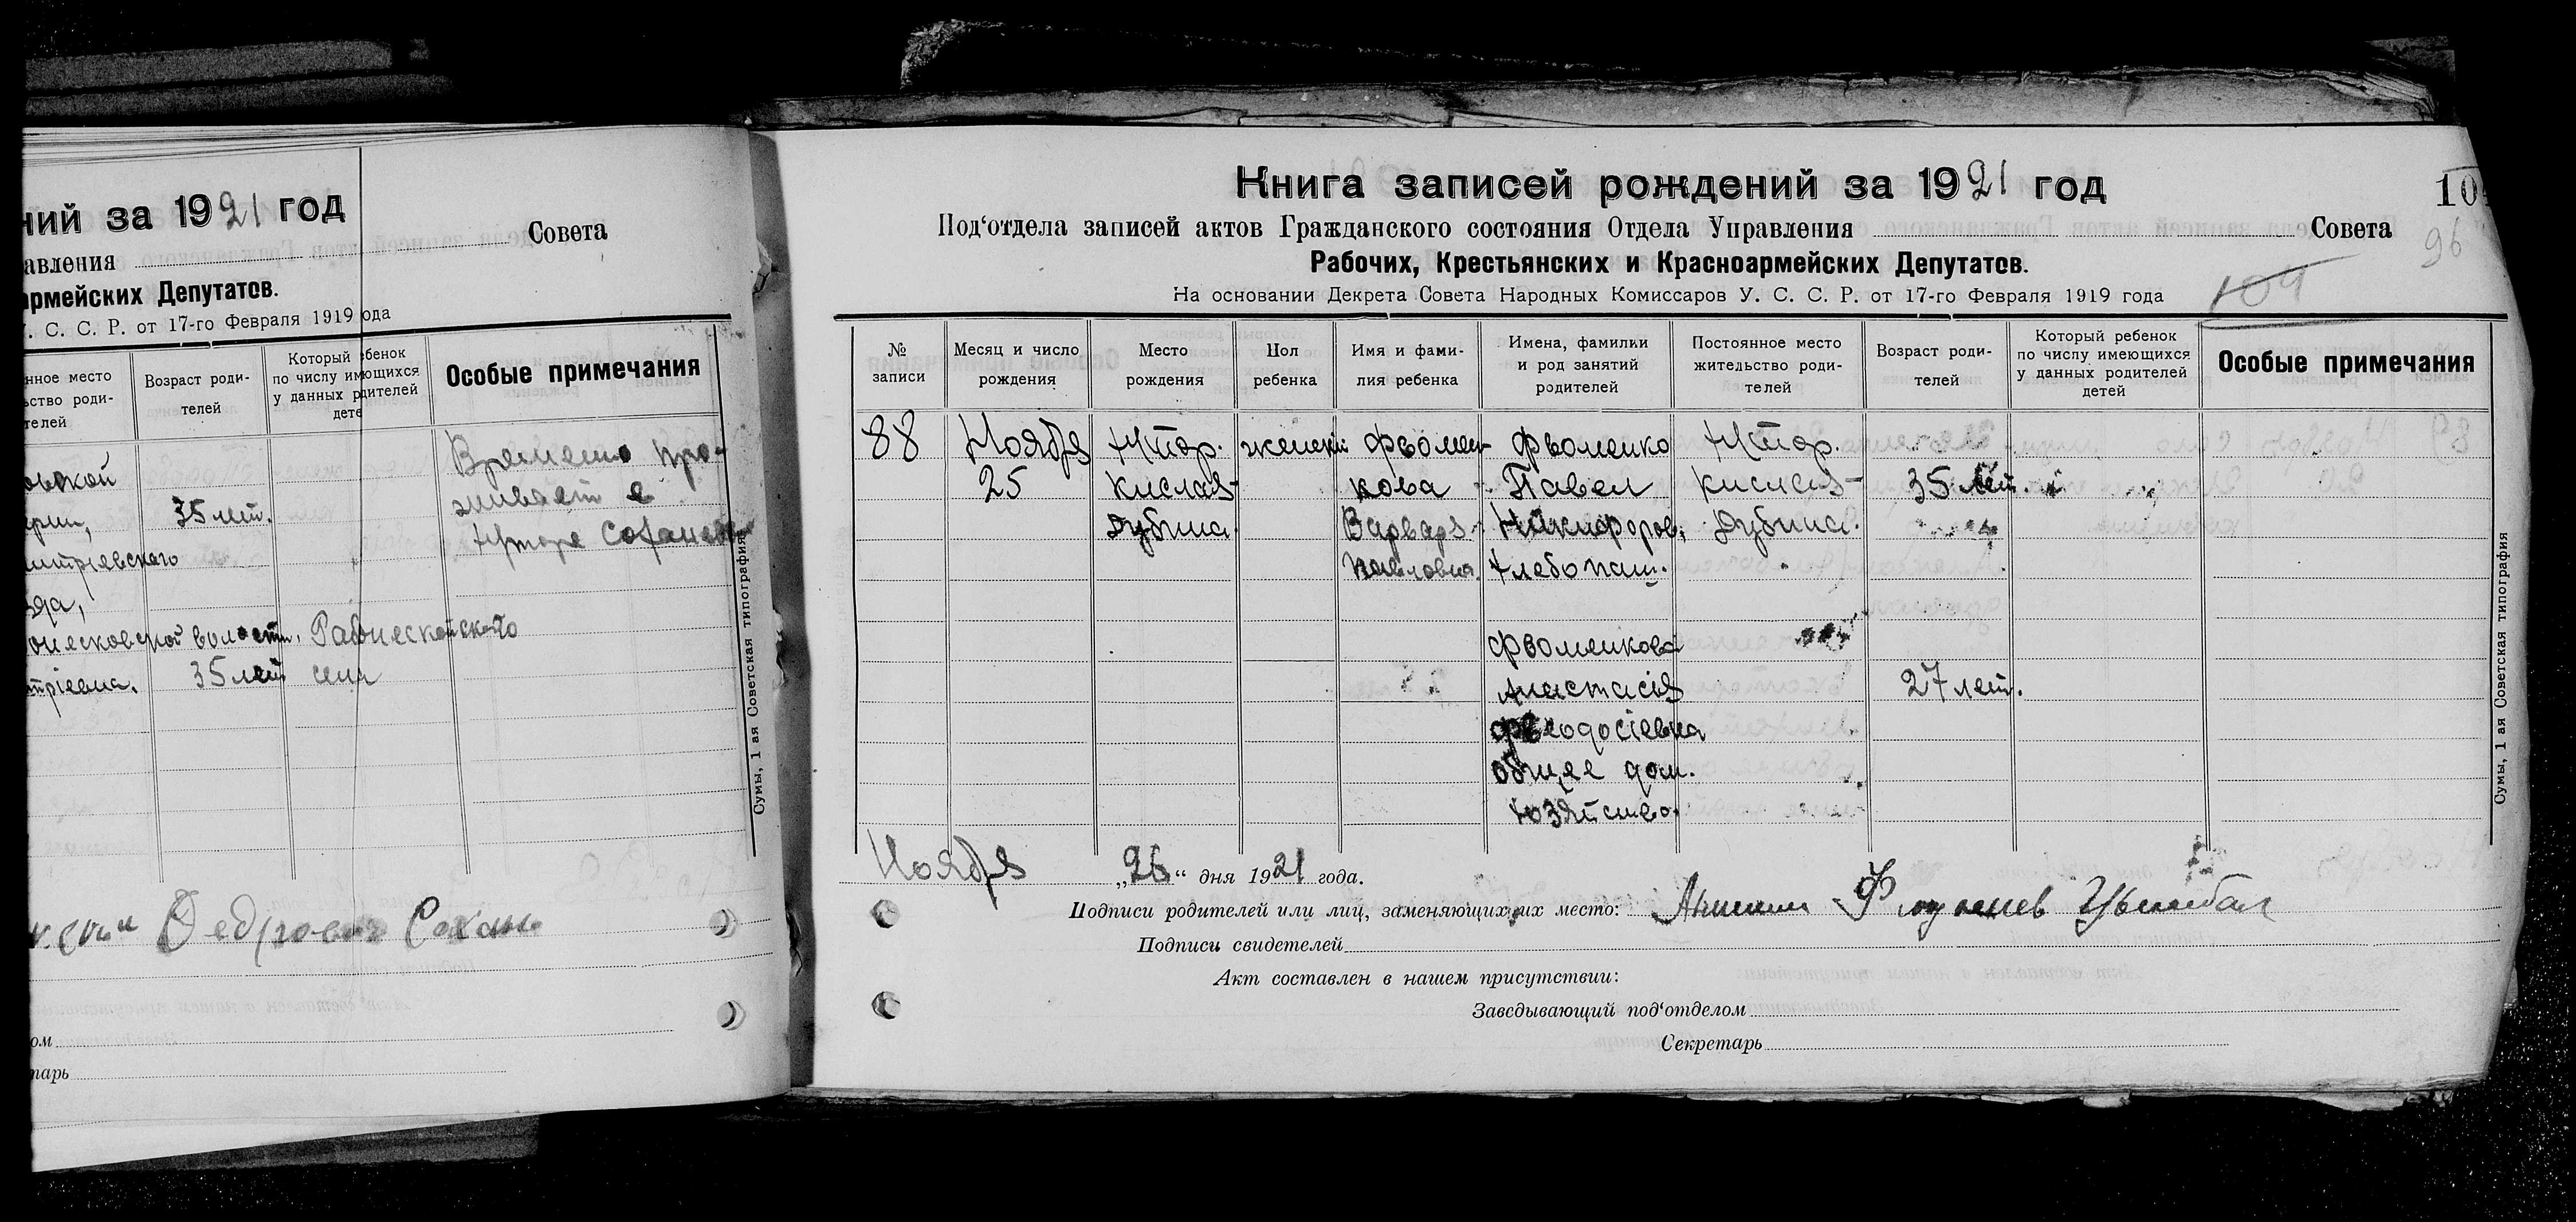 ний за 1921 год
авления Совета
армейских Депутатов.
У. С. С. Р. от 17-го Февраля 1919 года
нное место
ьство роди-
телей
Возраст роди-
телей
Который ребенок
по числу имеющихся
у данных родителей
дете
Особые примечания
овской
35 лет.
Временно про-
живает в
Хуторе
митріевского
зда,
волости,
35 лет
села
тріевна.
Сумы, 1 ая Советская типография
ом
тарь
Книга записей рождений за 1921 год
10
Под‘отдела записей актов Гражданского состояния Отдела Управления Совета
96
Рабочих, Крестьянских и Красноармейских Депутатов.
На основании Декрета Совета Народных Комиссаров У. С. С. Р. от 17-го Февраля 1919 года
104
№
записи
Месяц и число
рождения
Место
рождения
Пол
ребенка
Имя и фами-
лия ребенка
Имена, фамилии
и род занятий
родителей
Постоянное место
жительство роди-
телей
Возраст роди-
телей
Который ребенок
по числу имеющихся
у данных родителей
детей
Особые примечания
88
Ноября
25
Хутор.
Кислая-
Дубина.
женский
Фвомен-
кова
Варвара
Павловна.
Фвоменко
Павел
Никифоров.
Хлебопаш.
Фвоменкова
Анастасія
Феодосіевна
общее дом.
хозяйство.
Хутор.
Кислая-
Дубина.
35 лет.
27 лет.
Сумы, 1 ая Советская типография
Ноября „26“ дня 1921 года.
Подписи родителей или лиц, заменяющих их место:
Подписи свидетелей
Акт составлен в нашем присутствии:
Заведывающий под‘отделом
Секретарь